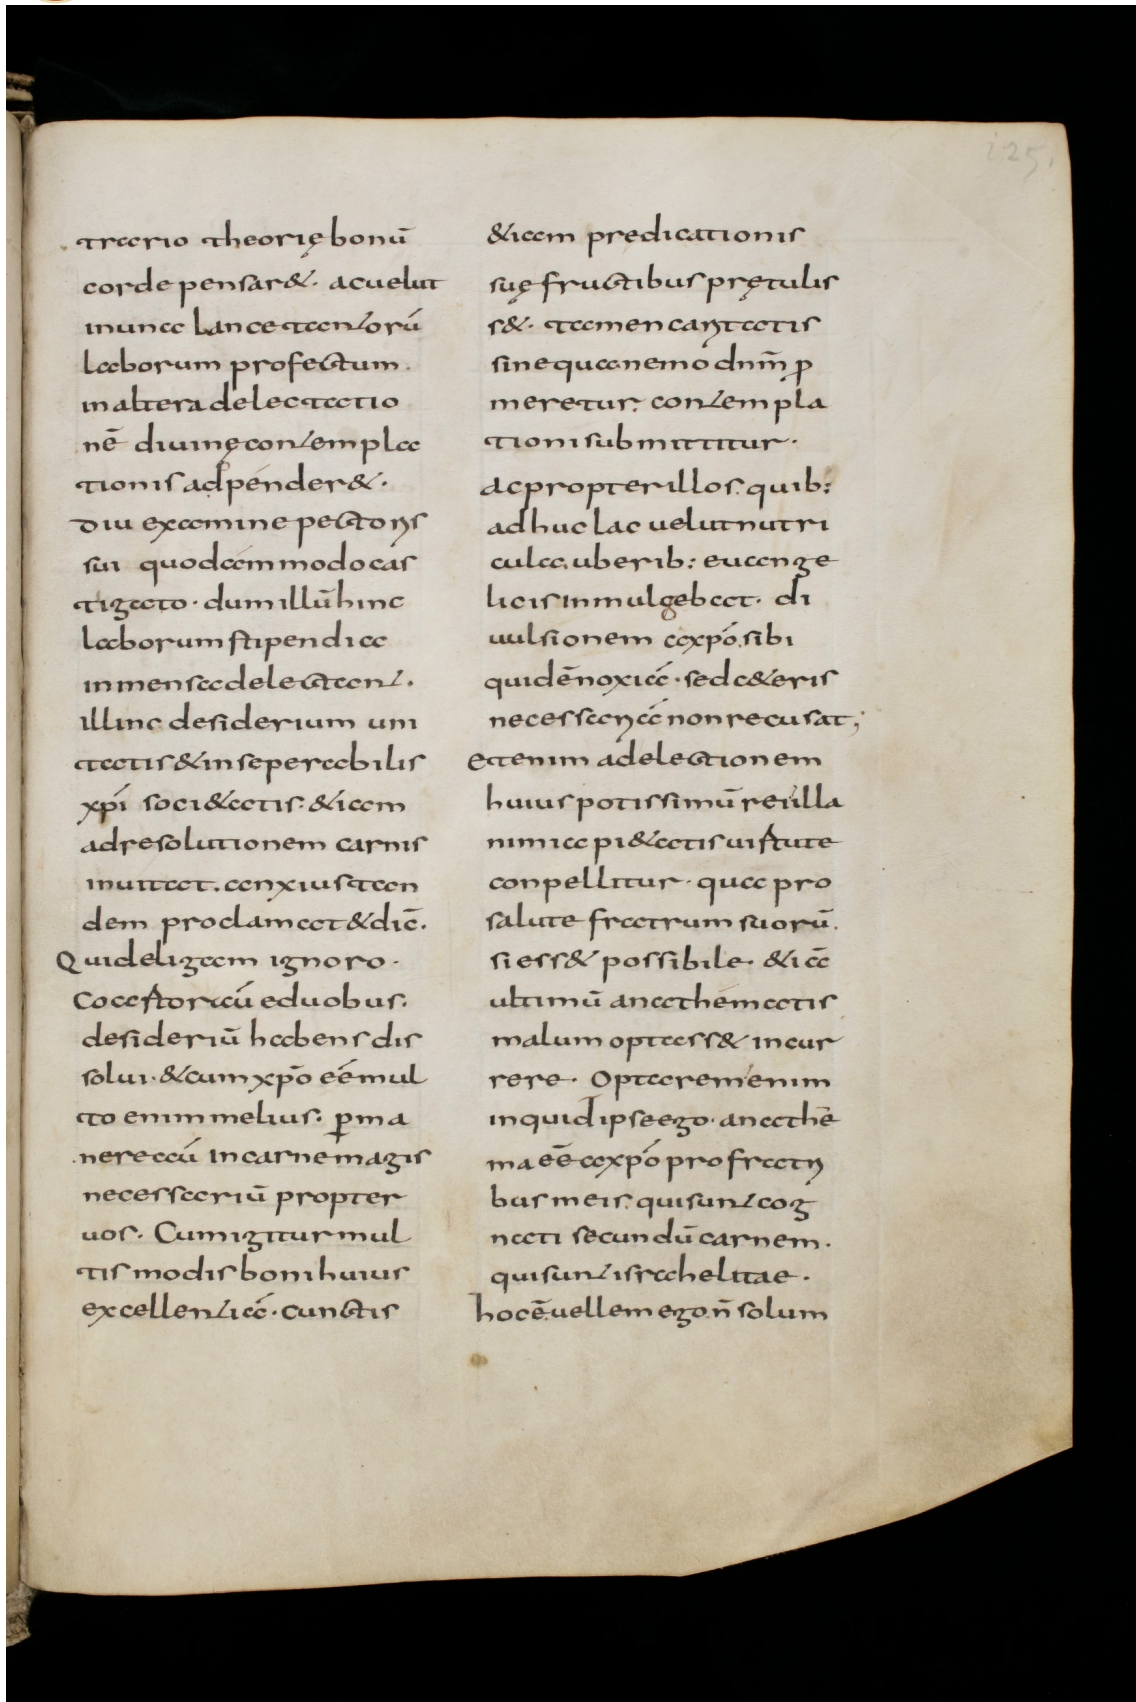 trario theorię bonū
corde pensar&. acuelut
inuna lance tantorū
laborum profectum.
inaltera delectatio
nē diuinę contempla
tionis adpender&.
Diu examine pectoris
sui quodammodo cas
tigato. dum illū hinc
laborum stipendia
inmensa delectant.
illinc desiderium uni
tatis & inseperabilis
xpi soci&atis. &iam
adresolutionem carnis
inuitat. anxius tan
dem proclamat & dic̄.
Quid eligam ignoro.
Coaftor aū eduobus.
desideriū habens dis
solui. & cum xp̄o eē mul
to enim melius. ꝑma
nere aū incarne magis
necessariū propter
uos. Cum igitur mul
tis modis boni huius
excellentiā. cunctis
&iam predicationis
suę fructibus prętulis
s&. tamen caritatis
sine qua nemo dnm̄ ꝓ
meretur. contempla
tioni submittitur.
ac propter illos. quib:
adhuc lac uelut nutri
cula. uberib: euange
licis inmulgebat. di
uulsionem axpo. sibi
quidē noxiā. sed c&eris
necessariā non recusat;
Etenim adelectionem
huius potissimū rei illa
nimia pi&atis uirtute
conpellitur. qua pro
salute fratrum suorū.
si ess& possibile. &iā
ultimū anathematis
malum optass& incur
rere. Optarem enim
inquid ipse ego. anathe
ma eē axpo pro fratri
bus meis. qui sunt cog
nati secundū carnem.
qui sunt israhelitae.
hoc ē. uellem ego. n̄ solum